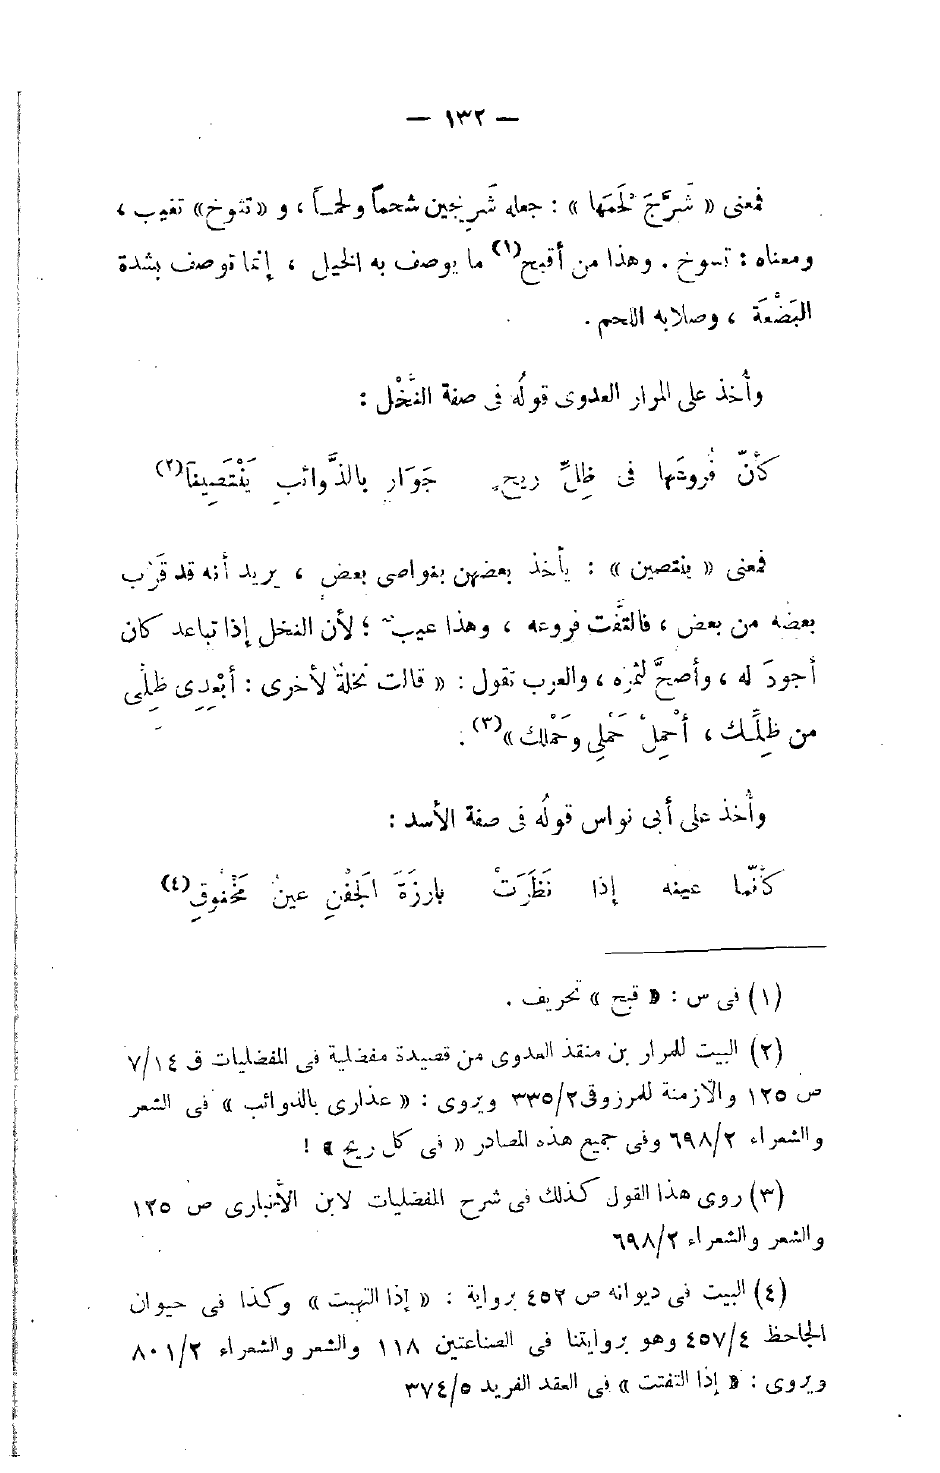 — ١٣٢ —
فمعنى « شَرَّجَ لَحْمَها » : جعله شَرِيجين شحماً ولحماً ، و « تثوخ » تغيب ،
ومعناه : تسوخ . وهذا من أقبح(١) ما يوصف به الخيل ، إنما توصف بشدة
البَضْعَة ، وصلابه اللحم .
وأُخذ على المرار العدوى قولُه فى صفة النَّخْل :
كأنّ فُروعَها فى ظِلِّ ريحٍ    جَوَارٍ بالذَّوائبِ يَنْتَصِينَا(٢)
فمعنى « ينتصين » : يأخذ بعضهن بنواصى بعض ، يريد أنه قد قَرُب
بعضُه من بعض ، فالتفَّت فروعه ، وهذا عيب ؛ لأن النخل إذا تباعد كان
أجودَ له ، وأصحَّ لثمره ، والعرب تقول : « قالت نخلةٌ لأخرى : أبْعِدِى ظِلِّى
من ظِلِّك ، أحْمِلْ حَمْلِى وحَمْلك »(٣) .
وأُخذ على أبى نواس قولُه فى صفة الأسد :
كأنّما عينه إذا نَظَرَتْ    بارزَةَ الجَفْنِ عينُ مَخْنُوقِ(٤)
(١) فى س : « قبح » تحريف .
(٢) البيت للمرار بن منقذ العدوى من قصيدة مفضلية فى المفضليات ق ١٤/٧
ص ١٢٥ والأزمنة للمرزوقى ٢/٣٣٥ ويروى : « عذارى بالذوائب » فى الشعر
والشعراء ٢/٦٩٨ وفى جميع هذه المصادر « فى كل ريح » !
(٣) روى هذا القول كذلك فى شرح المفضليات لابن الأنبارى ص ١٢٥
والشعر والشعراء ٢/٦٩٨
(٤) البيت فى ديوانه ص ٤٥٢ برواية : « إذا التهبت » وكذا فى حيوان
الجاحظ ٤/٤٥٧ وهو بروايتنا فى الصناعتين ١١٨ والشعر والشعراء ٢/٨٠١
ويروى : « إذا التفتت » فى العقد الفريد ٥/٣٧٤